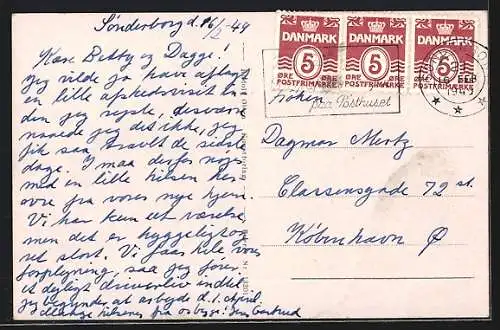 Sønderborg d. 16/2 - 49
Kære Betty og Dagge!
Jeg vilde jo have aflagt
en lille afskedsvisit in-
den jeg rejste, desværre
naaede jeg det ikke, jeg
fik saa travlt de sidste
dage. I maa derfor nøjes
med en lille hilsen her-
ovre fra vores nye hjem.
Vi har kun eet værelse,
men det er hyggeligt og
ret stort. Vi faar hele vores
forplejning, saa jeg fører
et dejligt driverliv indtil
jeg begynder at arbejde d. 1. April.
hilsener fra Gertrud
DANMARK
5
ØRE
POSTFRIMÆRKE
DANMARK
5
ØRE
POSTFRIMÆRKE
DANMARK
5
ØRE
POSTFRIMÆRKE
paa Posthuset
Frøken
Dagmar Mertz
Classensgade 72 st.
København Ø